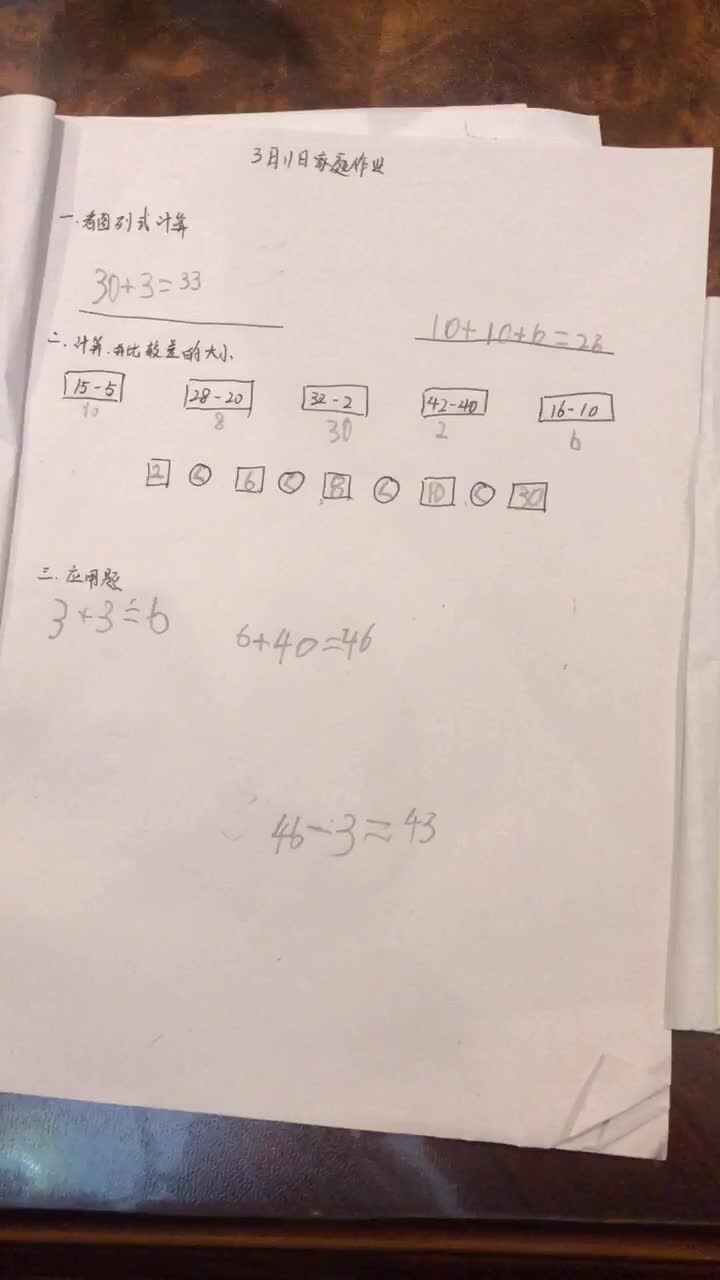 3月11日家庭作业
一.看图列式计算
30+3=33
10+10+6=26
二.计算.并比较差的大小
15-5 28-20 32-2 42-40 16-10
10 8 30 2 6
2 < 6 < 8 < 10 < 30
三.应用题
3+3=6
6+40=46
46-3=43